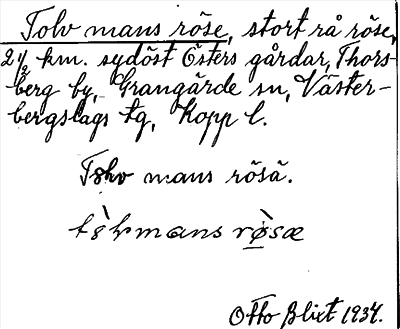 Tolv mans röse, stort rå röse,
2½ km. sydöst Östers gårdar, Thors-
berg by, Grangärde sn, Väster-
bergslags tg, Kopp l.
mans rösä.
Otto Blixt 1934.